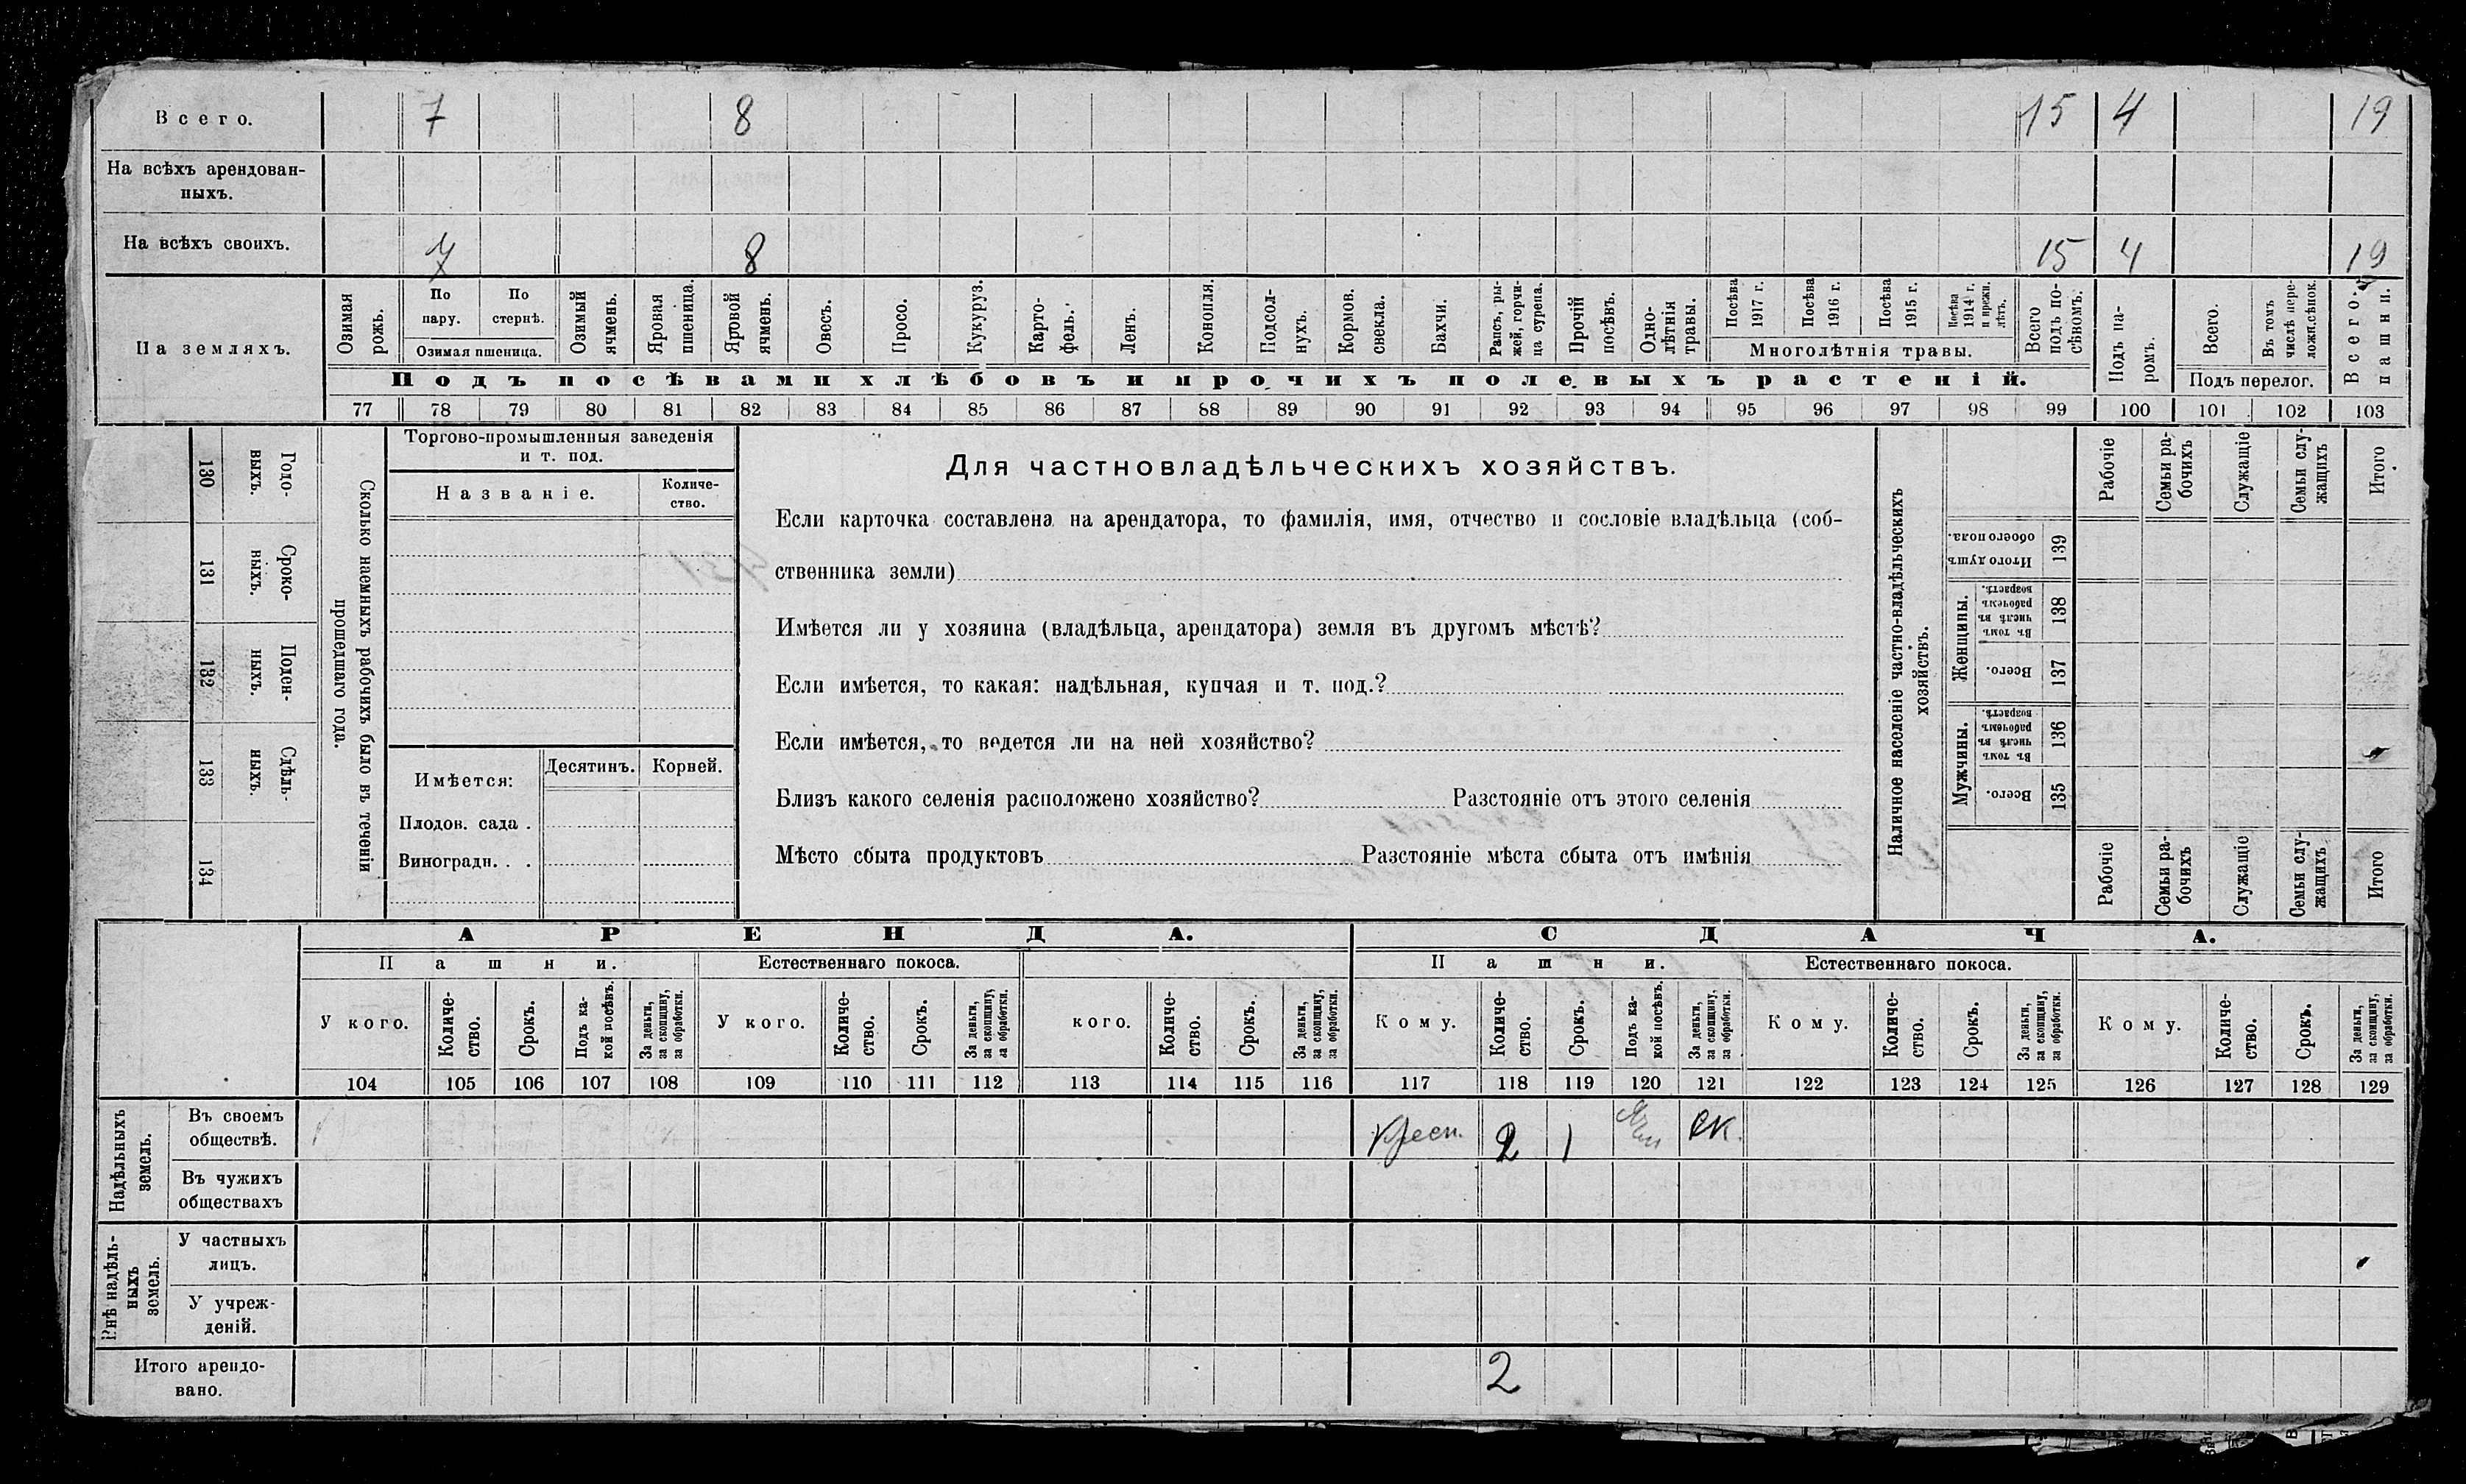 Всего. 7 8 15 4 19
На всѣхъ арендован-
ныхъ.
На всѣхъ своихъ. 7 8 15 4 19
На земляхъ.
Озимая
рожь.
По
пару.
По
стернѣ.
Озимая пшеница.
Озимый
ячмень.
Яровая
пшеница.
Яровой
ячмень.
Овесъ.
Просо.
Кукуруз.
Карто-
фель.
Ленъ.
Конопля.
Подсол-
нухъ.
Кормов.
свекла.
Бахчи.
Рапсъ, ры-
жей, горчи-
ца сурепа.
Прочій
посѣвъ.
Одно-
лѣтнія
травы.
Посѣва
1917 г.
Посѣва
1916 г.
Посѣва
1915 г.
Посѣва
1914 г.
и прежн.
лѣтъ.
Многолѣтнія травы.
Всего
подъ по-
сѣвомъ.
Подъ посѣвами хлѣбовъ и прочихъ полевыхъ растеній.
Подъ па-
ромъ.
Всего.
Въ томъ
числѣ пере-
ложн.сѣнок.
Подъ перелог.
Всего
пашни.
77 78 79 80 81 82 83 84 85 86 87 88 89 90 91 92 93 94 95 96 97 98 99 100 101 102 103
130 Годо-
выхъ.
131 Сроко-
выхъ.
132 Поден-
ныхъ.
133 Сдѣль-
ныхъ.
134
Сколько наемныхъ рабочихъ было въ теченіи
прошедшаго года.
Торгово-промышленныя заведенія
и т. под.
Названіе.
Количе-
ство.
Имѣется:
Десятинъ. Корней.
Плодов. сада .
Виноградн. . .
Для частновладѣльческихъ хозяйствъ.
Если карточка составлена на арендатора, то фамилія, имя, отчество и сословіе владѣльца (соб-
ственника земли)
Имѣется ли у хозяина (владѣльца, арендатора) земля въ другомъ мѣстѣ?
Если имѣется, то какая: надѣльная, купчая и т. под.?
Если имѣется, то ведется ли на ней хозяйство?
Близъ какого селенія расположено хозяйство? Разстояніе отъ этого селенія
Мѣсто сбыта продуктовъ Разстояніе мѣста сбыта отъ имѣнія
Наличное населеніе частно-владѣльческихъ
хозяйствъ.
Рабочіе
Семьи ра-
бочихъ
Служащіе
Семьи слу-
жащихъ
Итого
Итого душъ
обоего пола.
139
Женщины.
Въ томъ
числѣ въ
рабочемъ
возрастѣ.
138
Всего.
137
Мужчины.
Въ томъ
числѣ въ
рабочемъ
возрастѣ.
136
Всего.
135
Рабочіе
Семьи ра-
бочихъ
Служащіе
Семьи слу-
жащихъ
Итого
АРЕНДА. СДАЧА.
Пашни. Естественнаго покоса. Пашни. Естественнаго покоса.
У кого.
Количе-
ство.
Срокъ.
Подъ ка-
кой посѣвъ.
За деньги,
за скопщину,
за обработки.
У кого.
Количе-
ство.
Срокъ.
За деньги,
за скопщину,
за обработки.
кого.
Количе-
ство.
Срокъ.
За деньги,
за скопщину,
за обработки.
Кому.
Количе-
ство.
Срокъ.
Подъ ка-
кой посѣвъ.
За деньги,
за скопщину,
за обработки.
Кому.
Количе-
ство.
Срокъ.
За деньги,
за скопщину,
за обработки.
Кому.
Количе-
ство.
Срокъ.
За деньги,
за скопщину,
за обработки.
104 105 106 107 108 109 110 111 112 113 114 115 116 117 118 119 120 121 122 123 124 125 126 127 128 129
Надѣльныхъ
земель.
Въ своемъ
обществѣ. 2 1 ск.
Въ чужихъ
обществахъ
Внѣ надѣль-
ныхъ
земель.
У частныхъ
лицъ.
У учреж-
деній.
Итого арендо-
вано. 2